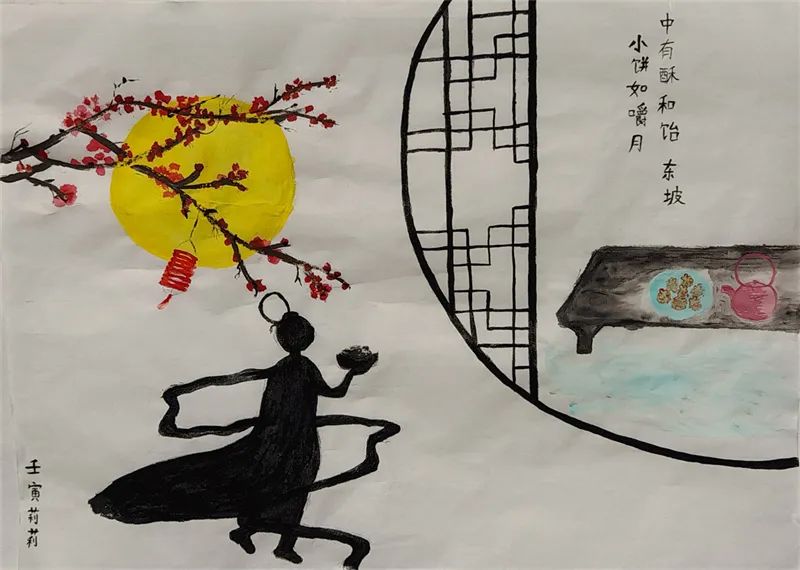 小饼如嚼月
中有酥和饴 东坡
壬寅莉莉